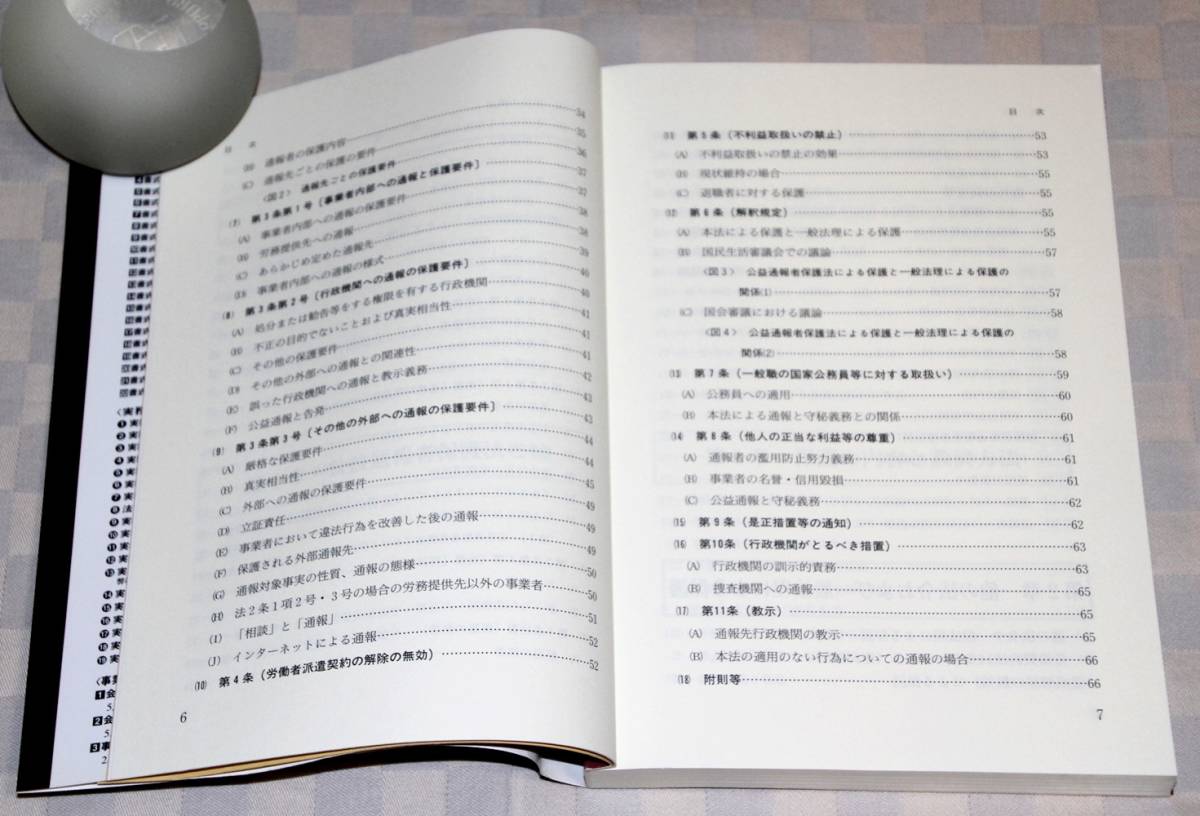 目 次
(B) 通報者の保護内容……34
(C) 通報先ごとの保護の要件……35
〈図2〉 通報先ごとの保護要件……36
(7) 第3条第1号〔事業者内部への通報と保護要件〕……37
(A) 事業者内部への通報の保護要件……37
(B) 労務提供先への通報……38
(C) あらかじめ定めた通報先……38
(D) 事業者内部への通報の様式……39
(8) 第3条第2号〔行政機関への通報の保護要件〕……40
(A) 処分または勧告等をする権限を有する行政機関……40
(B) 不正の目的でないことおよび真実相当性……41
(C) その他の保護要件……41
(D) その他の外部への通報との関連性……41
(E) 誤った行政機関への通報と教示義務……42
(F) 公益通報と告発……43
(9) 第3条第3号〔その他の外部への通報の保護要件〕……43
(A) 厳格な保護要件……44
(B) 真実相当性……44
(C) 外部への通報の保護要件……45
(D) 立証責任……49
(E) 事業者において違法行為を改善した後の通報……49
(F) 保護される外部通報先……49
(G) 通報対象事実の性質、通報の態様……50
(H) 法2条1項2号・3号の場合の労務提供先以外の事業者……50
(I) 「相談」と「通報」……51
(J) インターネットによる通報……52
(10) 第4条（労働者派遣契約の解除の無効）……52
6
目 次
(11) 第5条（不利益取扱いの禁止）……53
(A) 不利益取扱いの禁止の効果……53
(B) 現状維持の場合……55
(C) 退職者に対する保護……55
(12) 第6条（解釈規定）……55
(A) 本法による保護と一般法理による保護……55
(B) 国民生活審議会での議論……57
〈図3〉 公益通報者保護法による保護と一般法理による保護の
関係(1)……57
(C) 国会審議における議論……58
〈図4〉 公益通報者保護法による保護と一般法理による保護の
関係(2)……58
(13) 第7条（一般職の国家公務員等に対する取扱い）……59
(A) 公務員への適用……60
(B) 本法による通報と守秘義務との関係……60
(14) 第8条（他人の正当な利益等の尊重）……61
(A) 通報者の濫用防止努力義務……61
(B) 事業者の名誉・信用毀損……61
(C) 公益通報と守秘義務……62
(15) 第9条（是正措置等の通知）……62
(16) 第10条（行政機関がとるべき措置）……63
(A) 行政機関の訓示的責務……63
(B) 捜査機関への通報……65
(17) 第11条（教示）……65
(A) 通報先行政機関の教示……65
(B) 本法の適用のない行為についての通報の場合……66
(18) 附則等……66
7